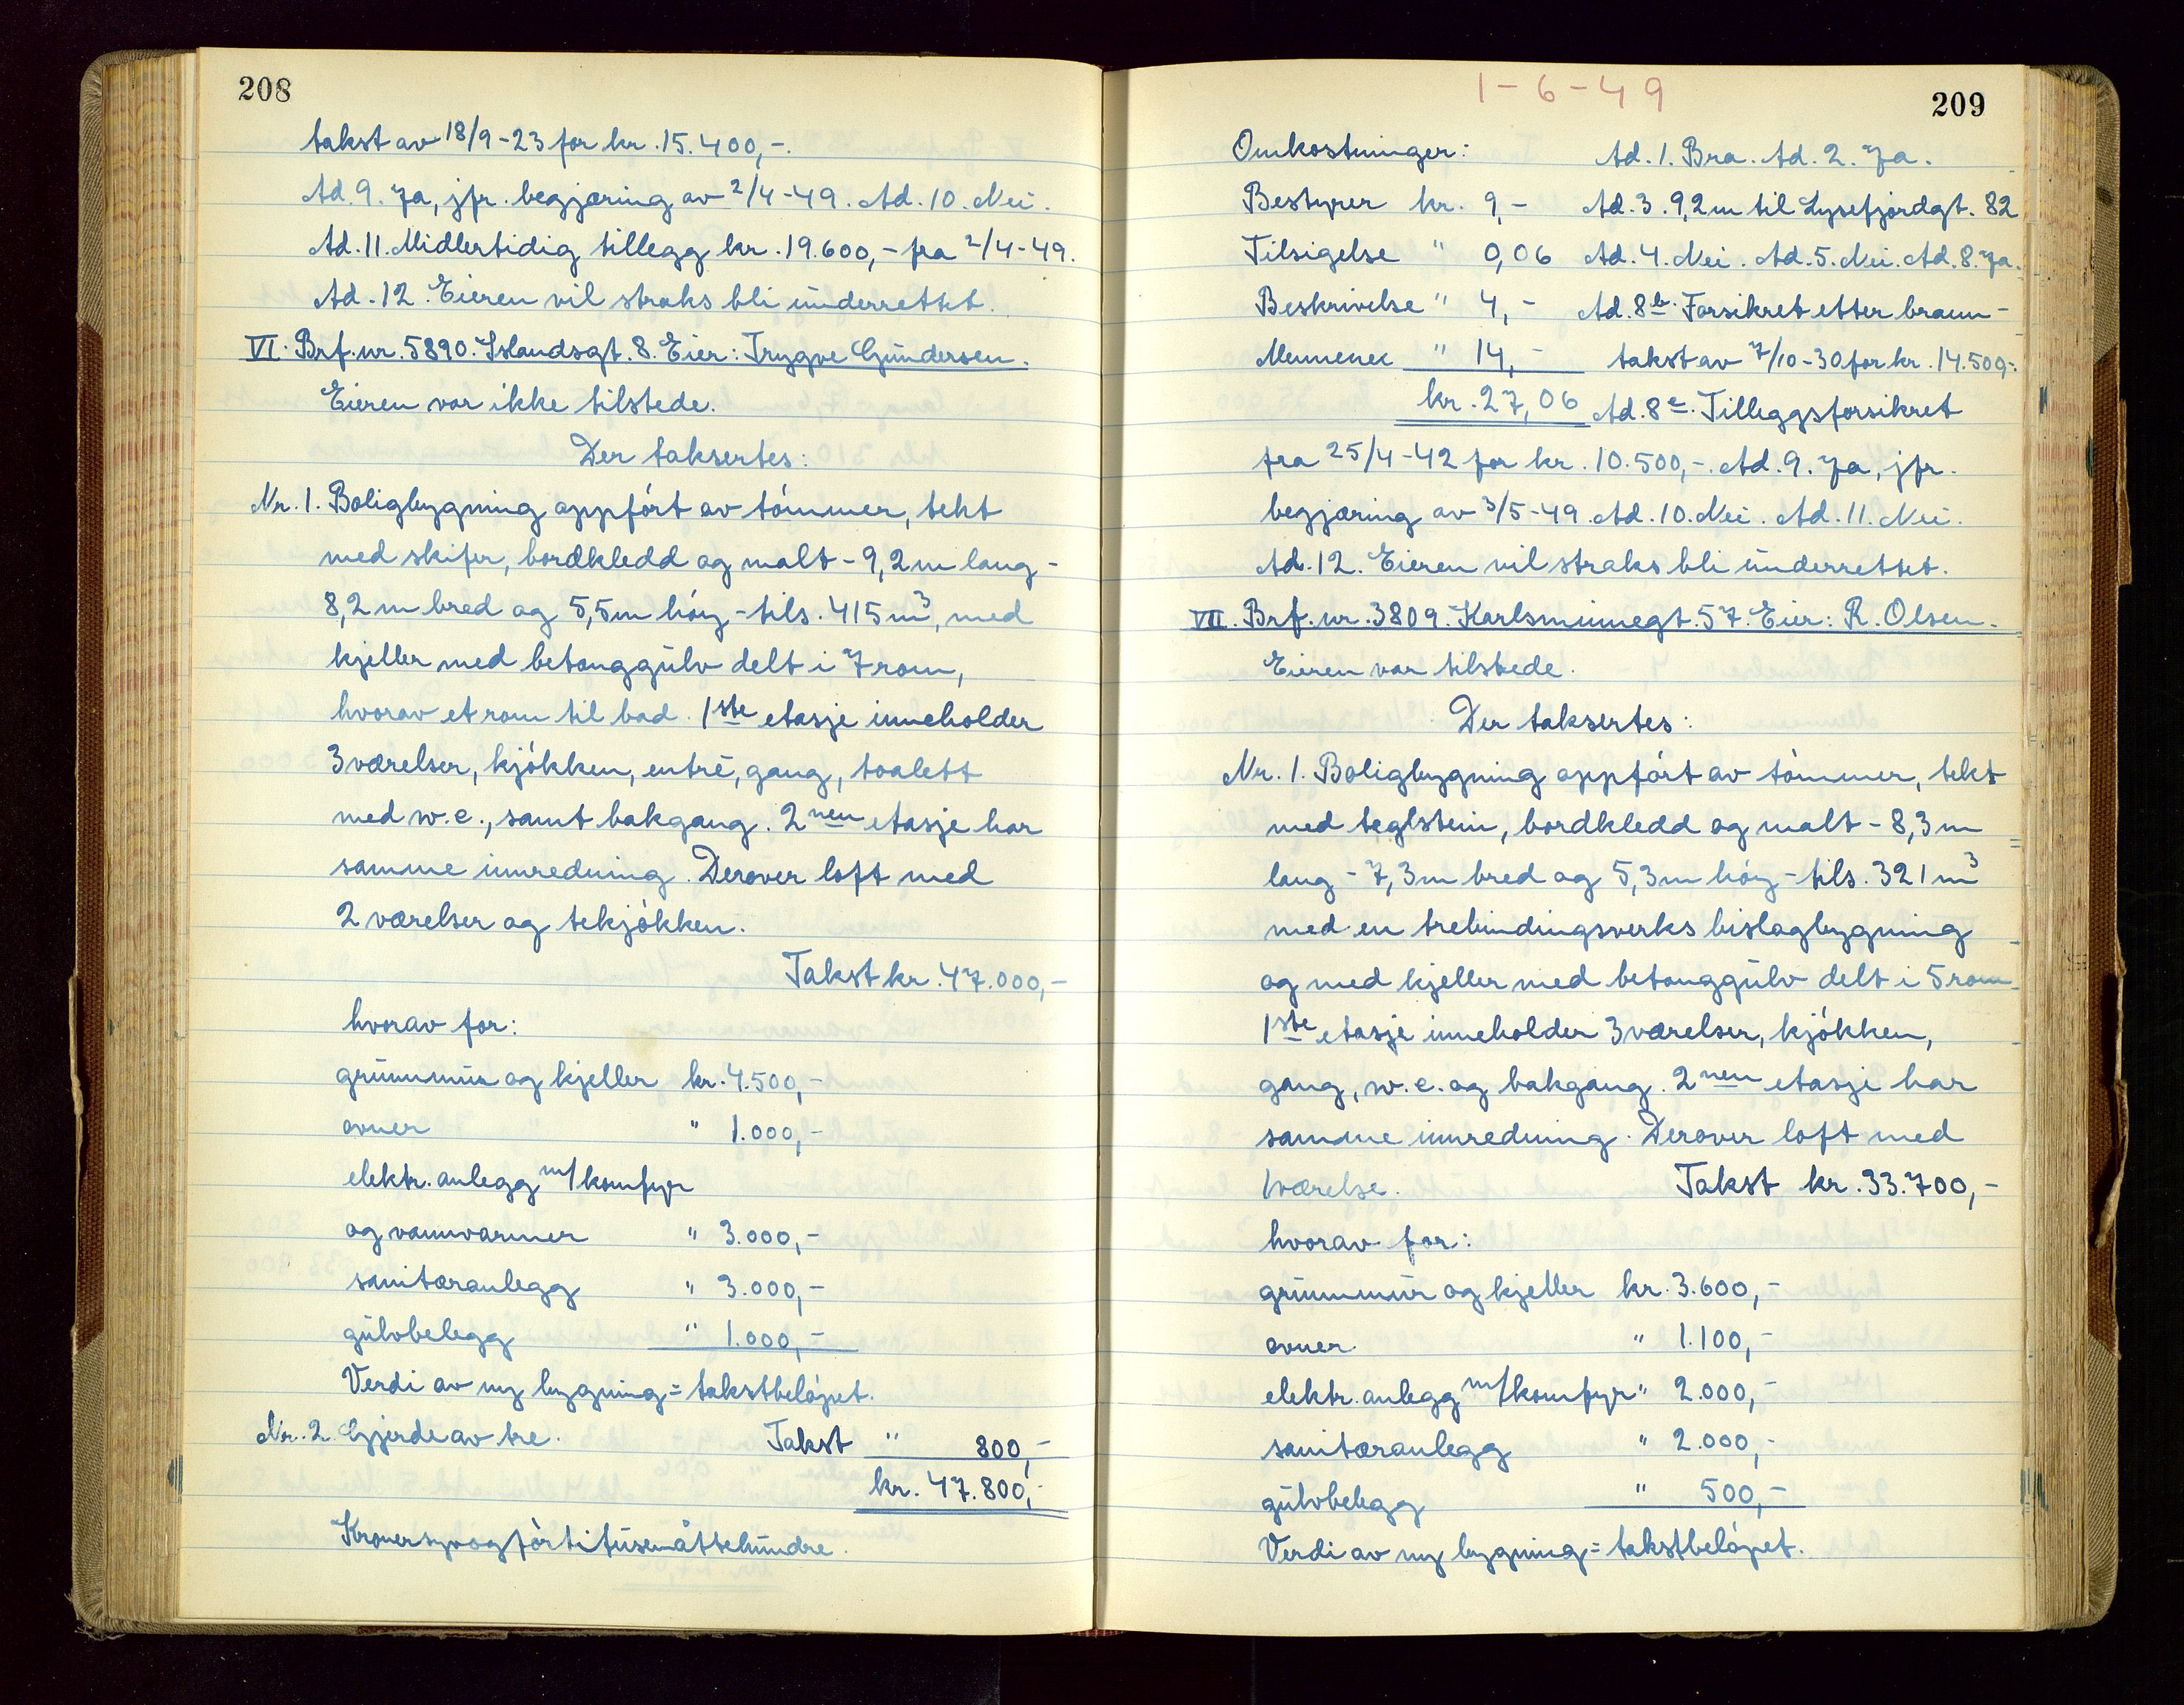 208
takst av 18/9-23 for kr. 15.400,-.
Ad. 9. Ja, jfr. begjæring av 2/4-49. Ad. 10. Nei.
Ad. 11. Midlertidig tillegg kr. 19.600,- fra 2/4-49.
Ad. 12. Eieren vil straks bli underrettet.
VI. Brf. nr. 5890. Islandsgt. 8. Eier: Trygve Gundersen.
Eieren var ikke tilstede.
Der taksertes:
Nr. 1. Boligbygning oppført av tømmer, tekt
med skifer, bordkledd og malt - 9,2 m lang -
8,2 m bred og 5,5 m høy - tils. 415 m³, med
kjeller med betonggulv delt i 7 rom,
hvorav et rom til bad. 1ste etasje inneholder
3 værelser, kjøkken, entré, gang, toalett
med w.c., samt bakgang. 2nen etasje har
samme innredning. Derover loft med
2 værelser og tekjøkken.
Takst kr. 47.000,-
hvorav for:
grunnmur og kjeller kr. 4.500,-
ovner " 1.000,-
elektr. anlegg m/komfyr
og vannvarmer " 3.000,-
sanitæranlegg " 3.000,-
gulvbelegg " 1.000,-
Verdi av ny bygning = takstbeløpet.
Nr. 2. Gjerde av tre. Takst " 800,-
kr. 47.800,-
Kroner syvogførtitusenåttehundre.
1-6-49
209
Omkostninger: Ad. 1. Bra. Ad. 2. Ja.
Bestyrer kr. 9,- Ad. 3. 9,2 m til Lysefjordgt. 82
Tilsigelse " 0,06 Ad. 4. Nei. Ad. 5. Nei. Ad. 8. Ja.
Beskrivelse " 4,- Ad. 8b. Forsikret etter brann-
Mennene " 14,- takst av 7/10-30 for kr. 14.500,-.
kr. 27,06 Ad. 8c. Tilleggsforsikret
fra 25/4-42 for kr. 10.500,-. Ad. 9. Ja, jfr.
begjæring av 3/5-49. Ad. 10. Nei. Ad. 11. Nei.
Ad. 12. Eieren vil straks bli underrettet.
VII. Brf. nr. 3809. Karlsminnegt. 57. Eier: R. Olsen.
Eieren var tilstede.
Der taksertes:
Nr. 1. Boligbygning oppført av tømmer, tekt
med teglstein, bordkledd og malt - 8,3 m
lang - 7,3 m bred og 5,3 m høy - tils. 321 m³
med en trebindingsverks bislagbygning
og med kjeller med betonggulv delt i 5 rom.
1ste etasje inneholder 3 værelser, kjøkken,
gang, w.c. og bakgang. 2nen etasje har
samme innredning. Derover loft med
1 værelse. Takst kr. 33.700,-
hvorav for:
grunnmur og kjeller kr. 3.600,-
ovner " 1.100,-
elektr. anlegg m/komfyr " 2.000,-
sanitæranlegg " 2.000,-
gulvbelegg " 500,-
Verdi av ny bygning = takstbeløpet.